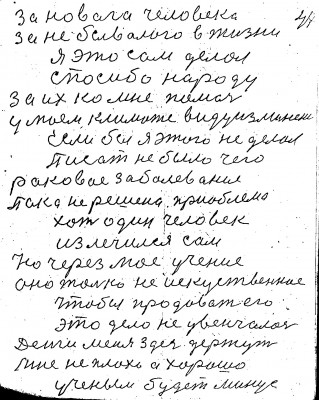 44
За новога человека
За небывалого в жизни
я это сам делал
спосибо народу
За их ко мне помоч
у моем климате видуизменит
Если бы я этого не делал
писат не было чего
раковое заболевание
пака не решена проблема
хот один человек
излечился сам
Но через мое учение
оно толко не искуственное
Чтобы продоват его
это дело не увенчалас
Дети меня здес держут
мне не плохо а хорошо
ученым будет минус